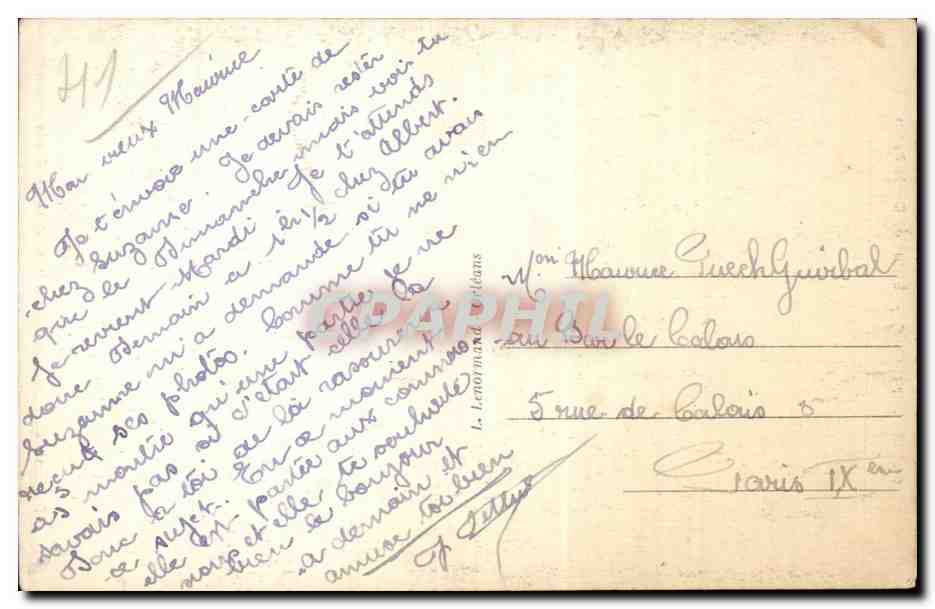 41
Mon vieux Maurice
Je t'envoie une carte de
chez Suzanne. Je devais rester
que le Dimanche mais vois tu
Je revient Mardi Je t'attends
donc Demain a 1 h 1/2 chez Albert.
Suzanne m'a demandé si tu avais
recut ses photos. Comme tu ne m'en
as montré qu'une partie Je ne
savais pas si s'était celle là
Donc a toi de la rasouré a
ce sujet. En ce moment
elle est partie aux commis-
sions et elle te souhaite
bien le bonjour
a demain et
amuse toi bien
L. Lenormand, Orléans
CPAPHIL
Mon Maurice Puech Guirbal
au Bar le Calais
5 rue de Calais
Paris IXem